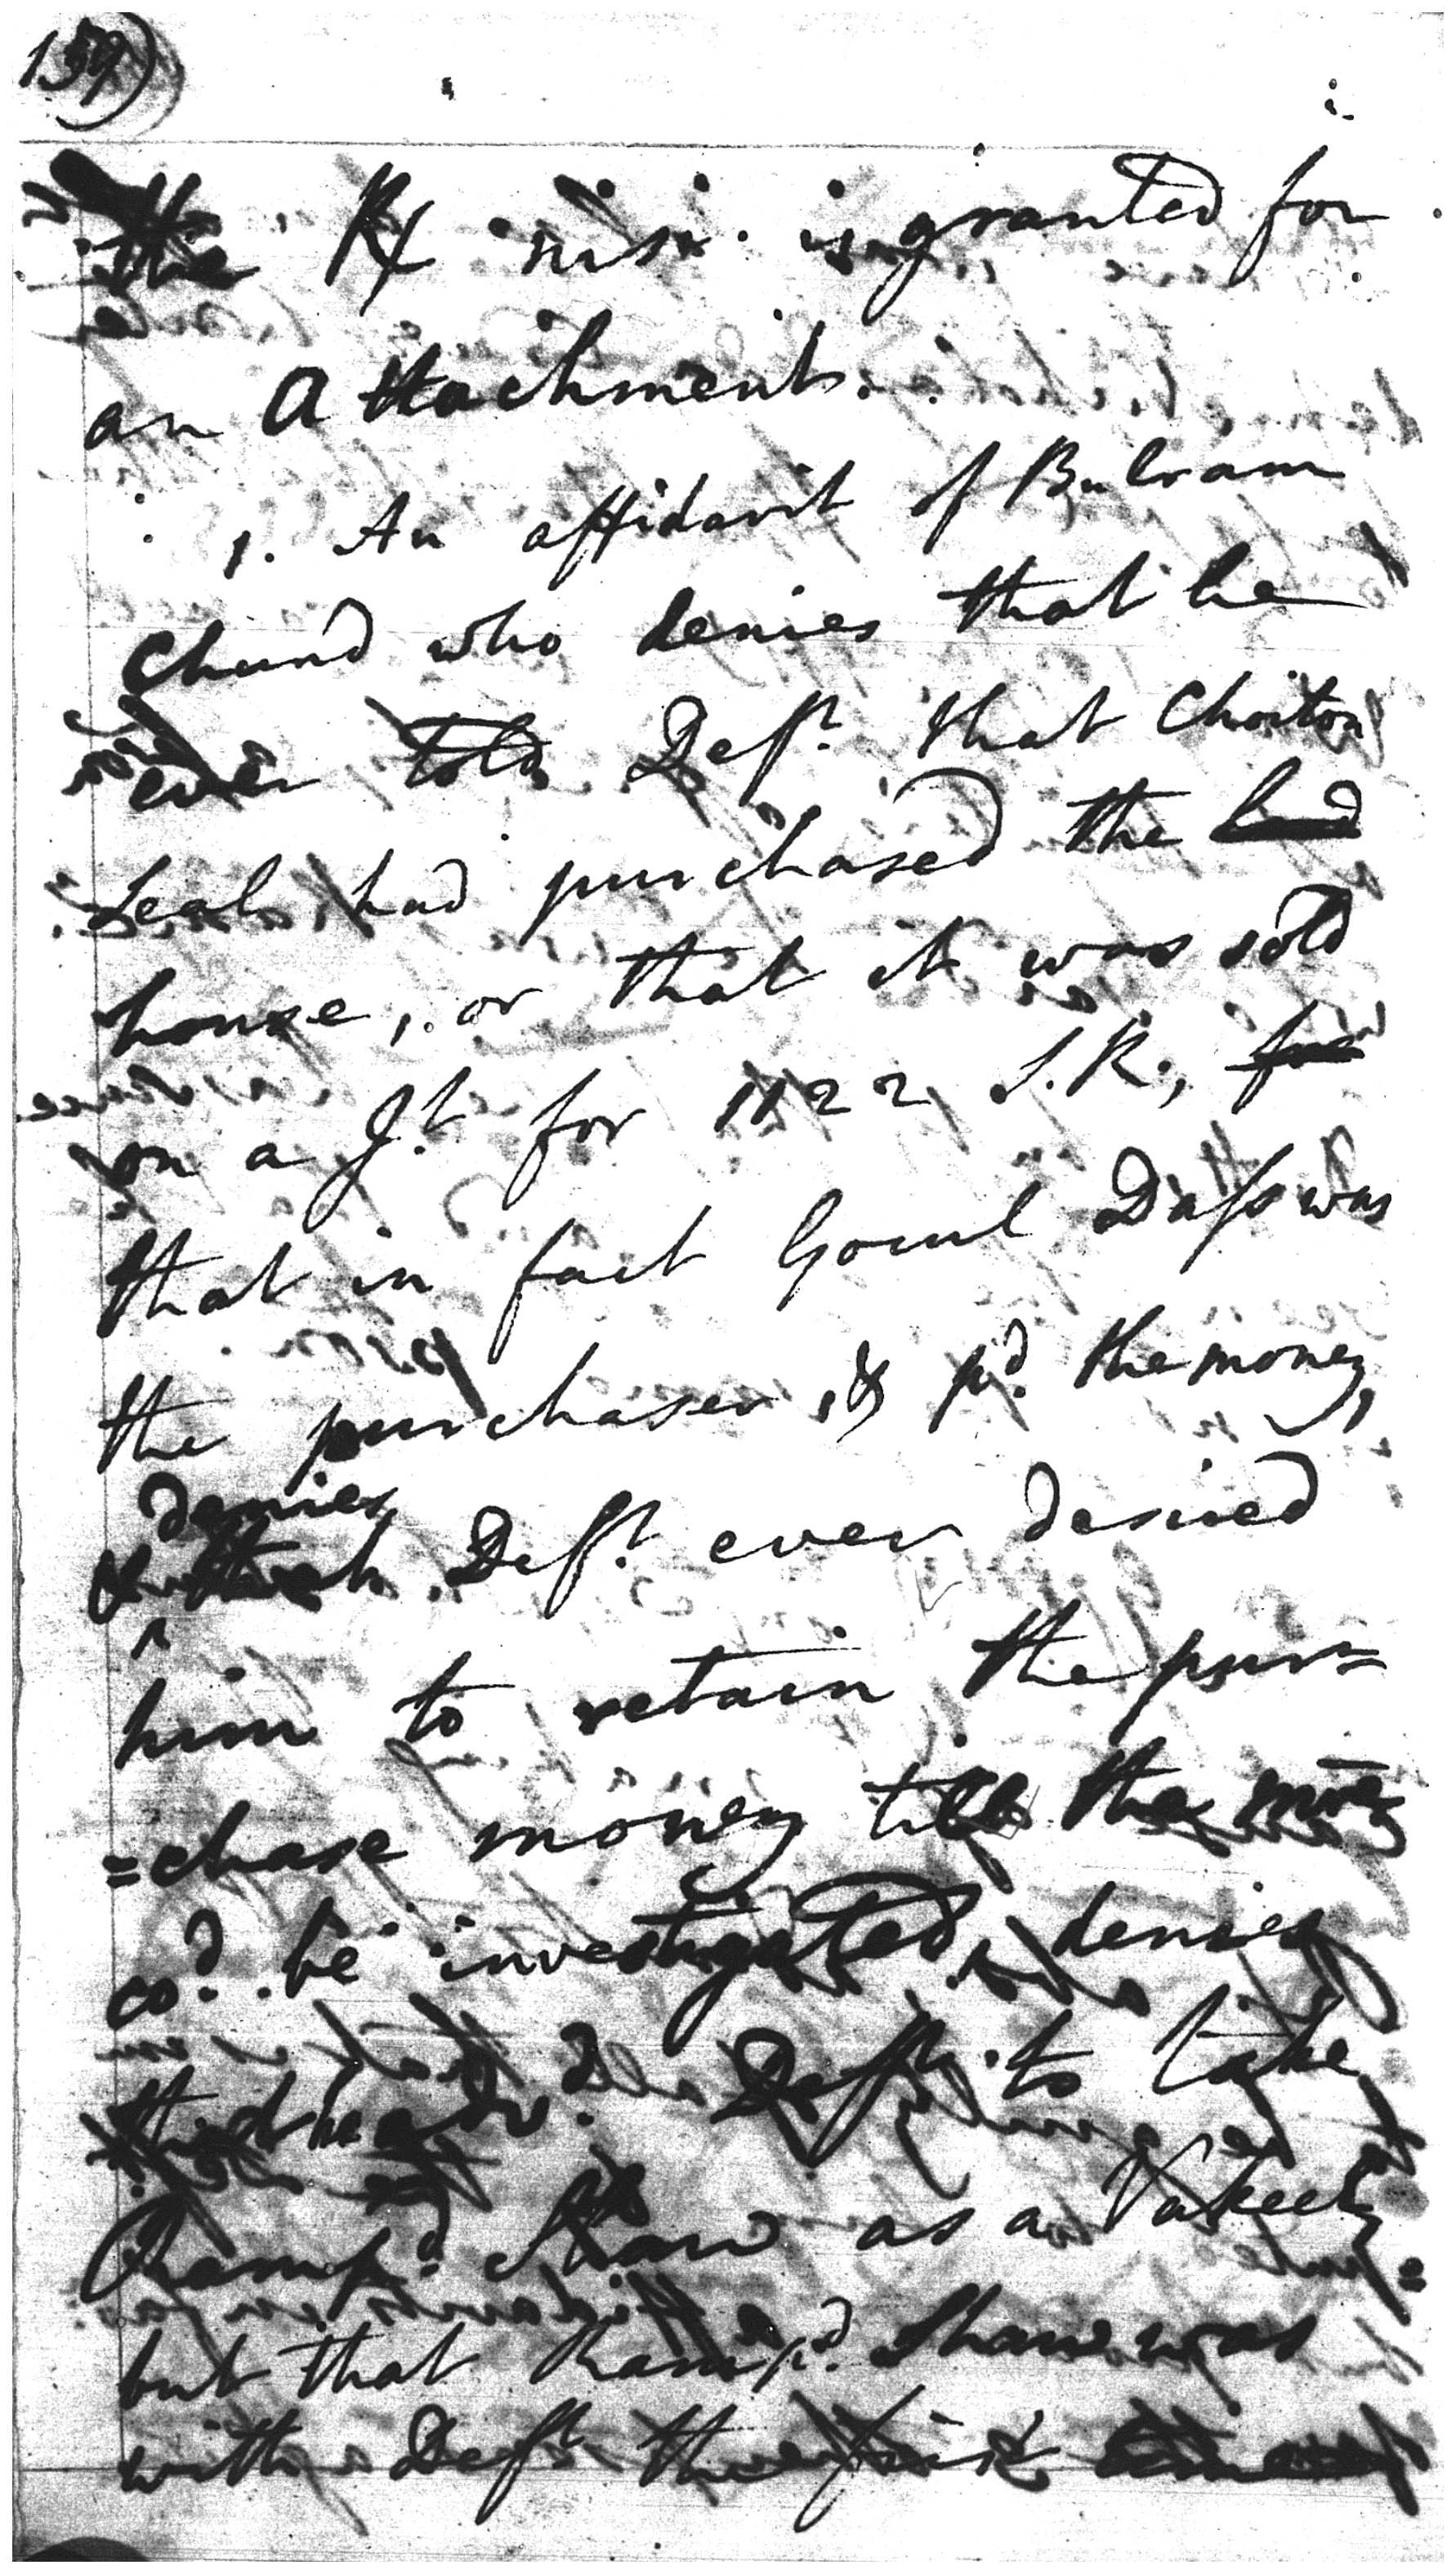 159)
The Rx nisi is granted for
an Attachment.
1. An affidavit of Bulram
Chund who denies that he
ever told Deft. that Choiton
Seal had purchased the land
house, or that it was sold
on a Jt. for 1122 S.R., for
that in fact Gocul Dass was
the purchaser, & pd. the money,
denies
& that Deft. ever desired
him to retain the pur=
=chase money till the
cod. be investigated, denies
that he advd. Deft. to take
Rampd. Shaw as a Vakeel,
but that Rampd. Shaw was
with Deft the first time